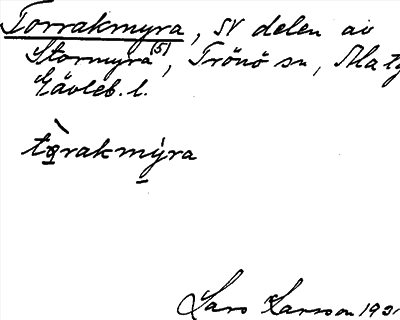 Torrakmyra, SV delen av
Stormyra (5), Trönö sn,
Gävleb. l.
tørakmỳra
Lars Larsson